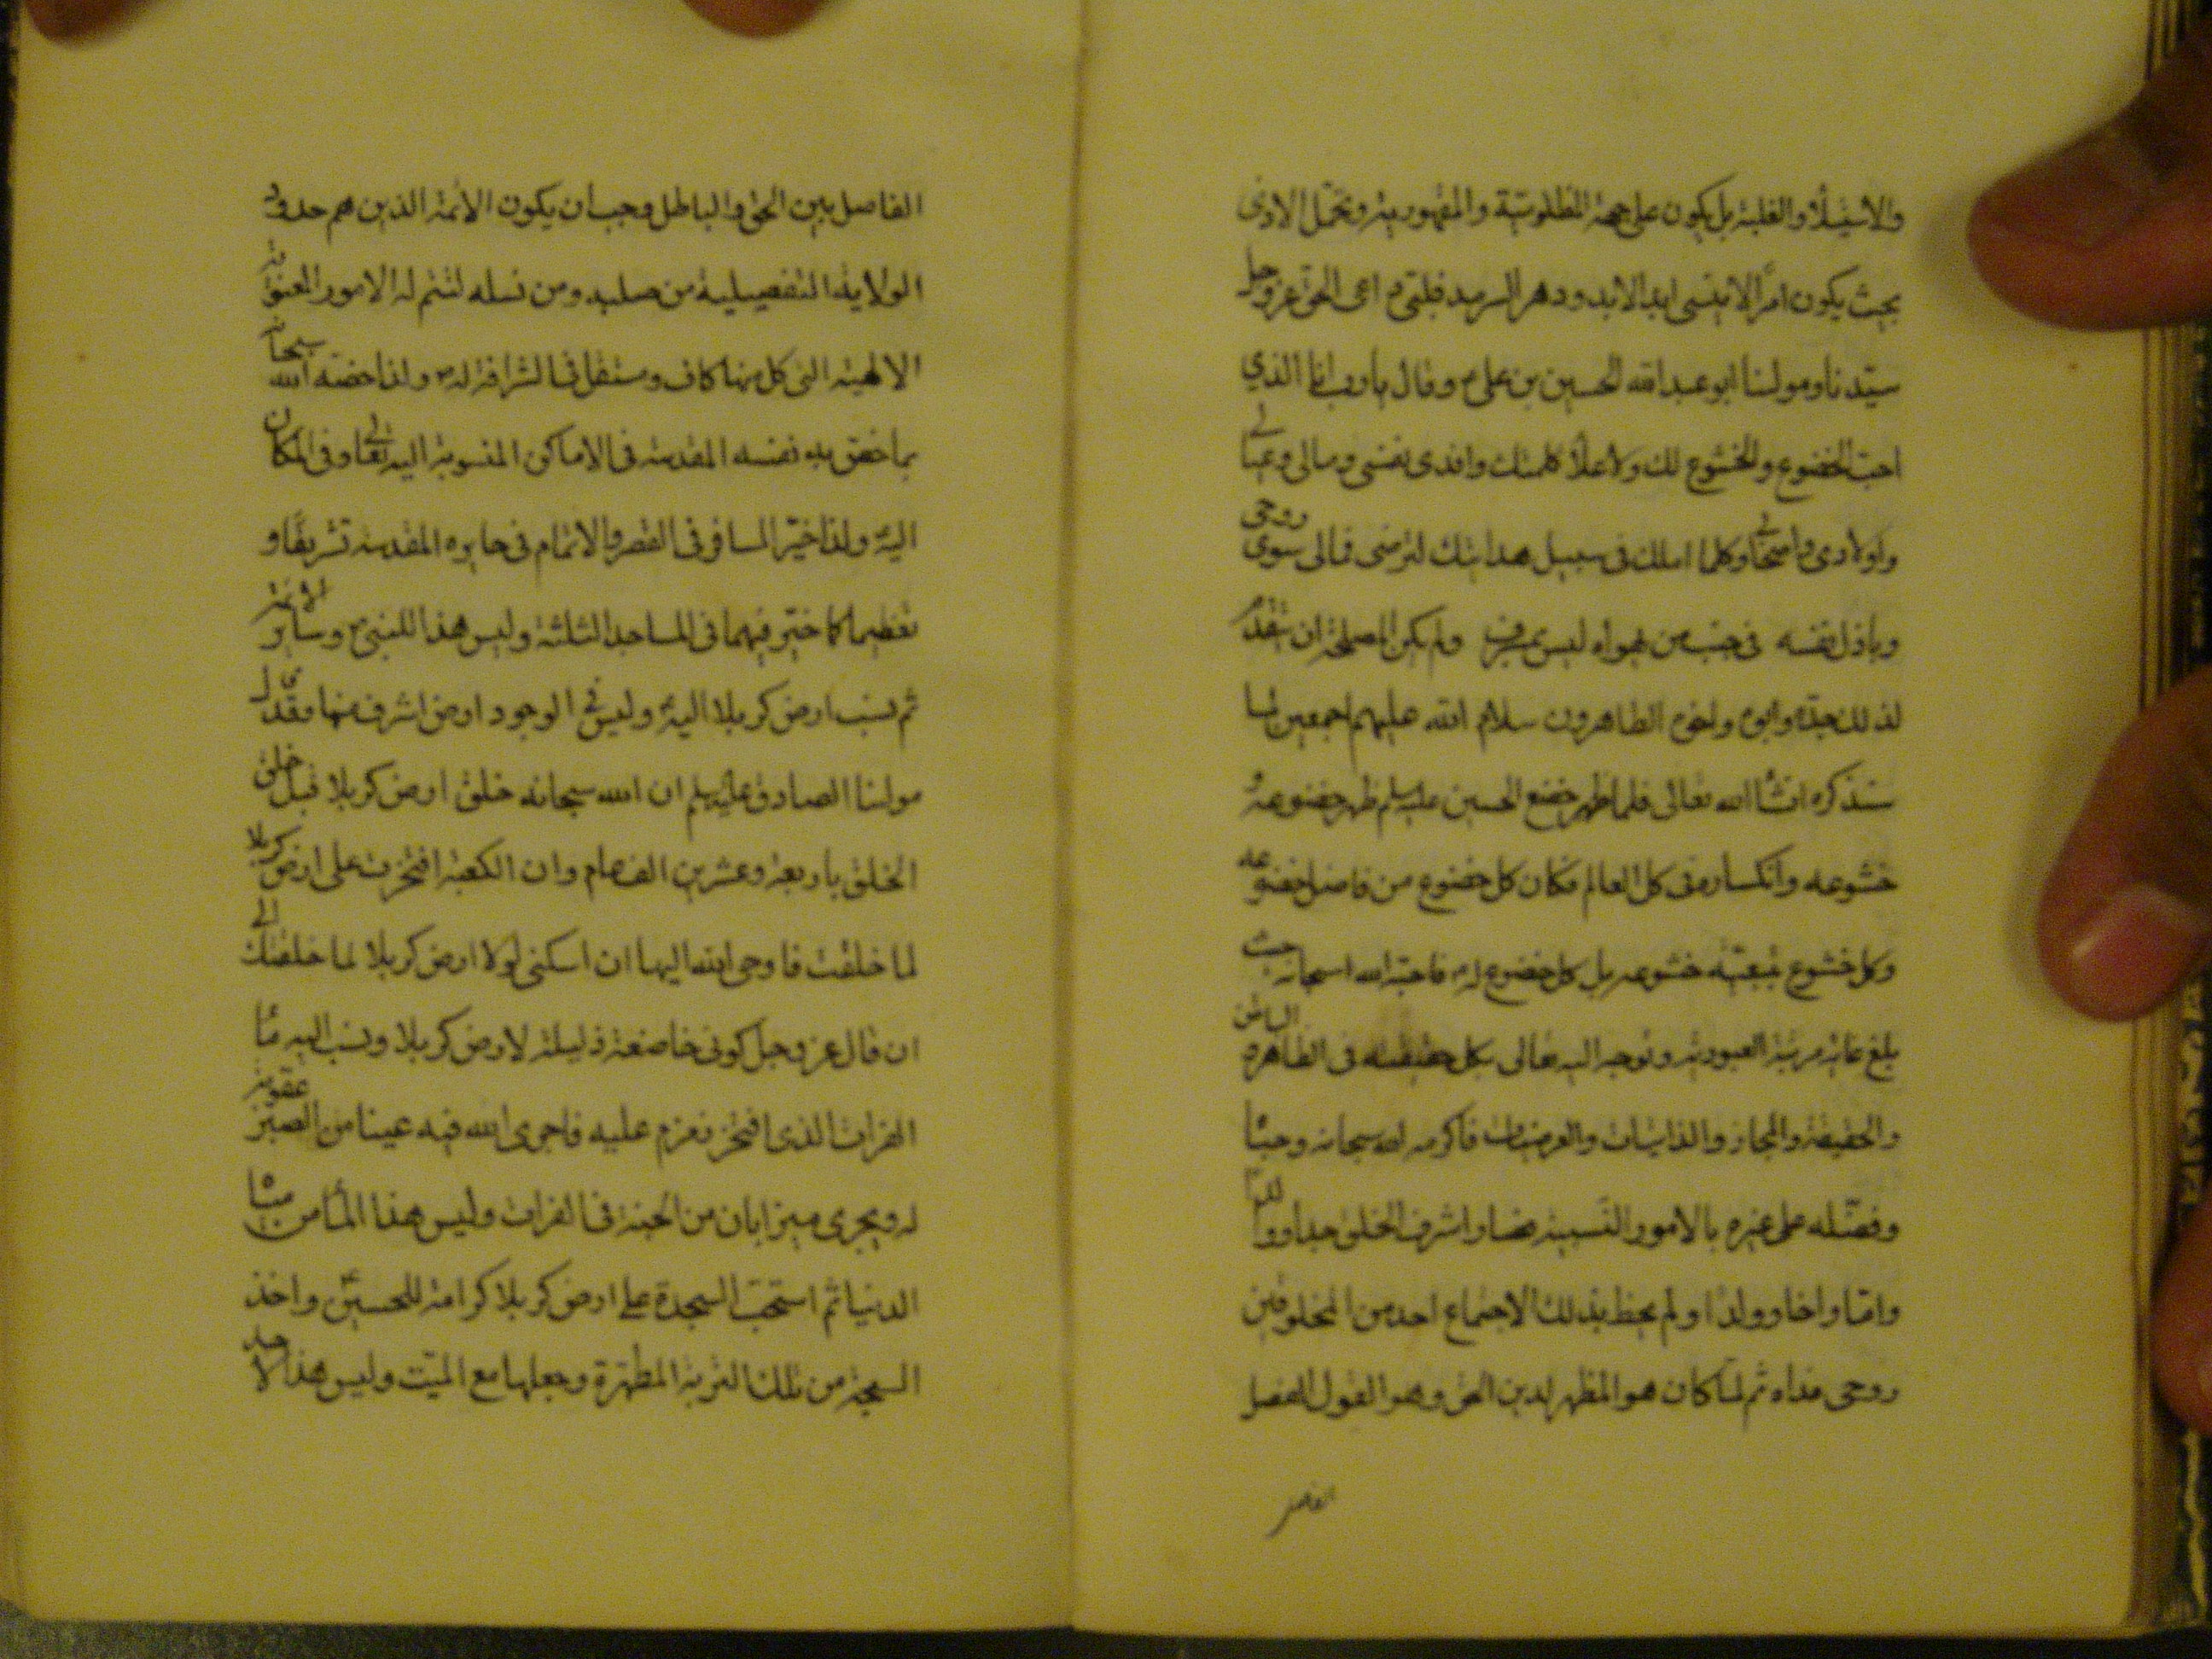 والاستيلاء والغلبة بل يكون على جهة المظلومية والمقهورية وتحمل الاذى
بحيث يكون امرا لا ينسى ابد الابد ودهر السرمد فلبى داعى الحق عز وجل
سيدنا ومولينا ابو عبد الله الحسين بن على ع وقال يا رب انا الذي
احب الخضوع والخشوع لك ولاعلاء كلمتك وافدى نفسى ومالى وعيالى
واولادى واصحابى وكلما املك فى سبيل هدايتك لترضى فمالى سوى روحى
وباذل نفسه فى حب من يهواه ليس بمسرف ولم يكن المصلحة ان يتقدم
لذلك جده وابوه واخوه الطاهرون سلام الله عليهم اجمعين لما
سنذكره انشاء الله تعالى فلما اظهر خضع الحسين عليه سلم ظهر خضوعه و
خشوعه وانكساره فى كل العالم فكان كل خضوع من فاضل خضوعه
وكل خشوع بتبعية خشوعه بل كل خضوع له فاحبه الله سبحانه حيث
بلغ غاية مرتبة العبودية وتوجه اليه تعالى بكل حقيقته فى الظاهر والباطن
والحقيقة والمجاز والذاتيات والعرضيات فاكرمه الله سبحانه وحباه
وفضله على غيره بالامور النسبية ايضا واشرف الخلق جدا ووالدا
واما واخا وولدا ولم يحظ بذلك الاجتماع احد من المخلوقين
روحى فداه ثم لما كان هو المظهر لدين الحق وهو القول الفصل
الفاصل
الفاصل بين الحق والباطل وجب ان يكون الائمة الذين هم حدود
الولاية التفصيلية من صلبه ومن نسله لتتم له الامور المعنوية
الالهية التى كل منها كاف ومستقل فى الشرافة له ع ولذا خصه الله سبحانه
بما خص به نفسه المقدسة فى الاماكن المنسوبة اليه تعالى وفى المكان
اليه ولذا خير المسافر فى القصر والاتمام فى حايره المقدسة تشريفا و
تعظيما كما خير فيهما فى المساجد الثلثة وليس هذا للنبى ص وساير الائمة
ثم نسب ارض كربلا اليه وليس فى الوجود ارض اشرف منها وقد قال
مولينا الصادق عليه سلم ان الله سبحانه خلق ارض كربلا قبل خلق
الخلق باربعة وعشرين الف عام وان الكعبة افتخرت على ارض كربلا
لما خلقت فاوحى الله اليها ان اسكنى لولا ارض كربلا لما خلقتك الى
ان قال عز وجل كونى خاضعة ذليلة لارض كربلا ونسب اليه ماء
الفرات الذى افتخر زمزم عليه فاجرى الله فيه عينا من الصبر عقوبة
له ويجرى ميزابان من الجنة فى الفرات وليس هذا الماء من مياه
الدنيا ثم استحب السجدة على ارض كربلا كرامة للحسين ع واخذ
السبحة من تلك التربة المطهرة وجعلها مع الميت وليس هذا لاحد